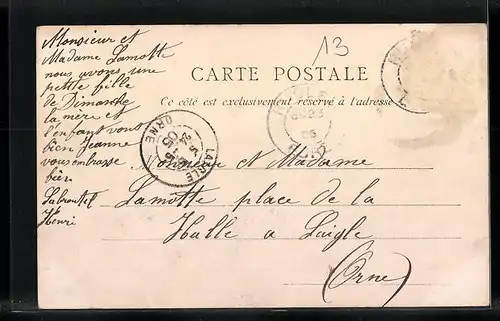 Monsieur et
Madame Lamotte
nous avons une
petite fille
de Dimanche
la mère et
l'enfant vont
bien Jeanne
vous embrasse
bien
Henri
13
CARTE POSTALE
Ce côté est exclusivement réservé à l'adresse
LAIGLE
ORNE
05
Monsieur et Madame
Lamotte place de la
Halle a Laigle
(Orne)